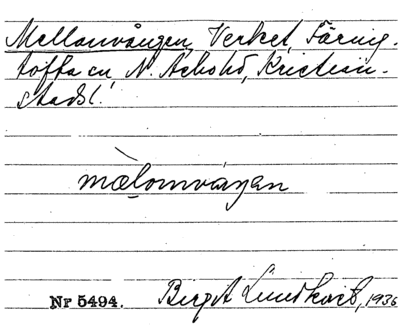 Mellanvången, Verket, Färing-
tofta sn, N. Åsbohd, Kristian-
stads l.
mælomvåŋen
Nr 5494. Birgit Lundkvist, 1936